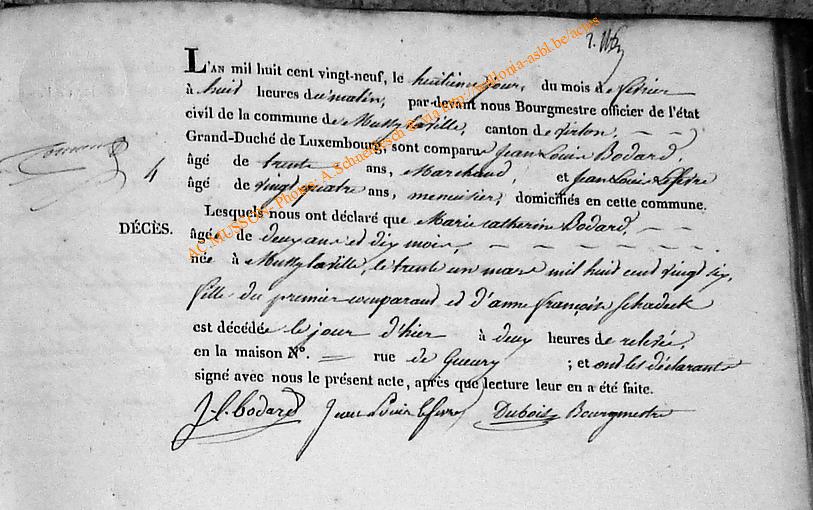 L'AN mil huit cent vingt-neuf, le huitieme jour, du mois de fevrier
à huit heures du matin, par-devant nous Bourgmestre officier de l'état
civil de la commune de Mussy laville, canton de virton,
Grand-Duché de Luxembourg, sont comparus Jean Louis Bodard,
âgé de trente ans, Marchand, et Jean Louis Lefevre
âgé de vingt quatre ans, menuisier, domiciliés en cette commune.
4
DÉCÈS.
Lesquels nous ont déclaré que Marie catherine Bodard,
âgée de deux ans et dix mois,
née à Mussy laville, le trente un mars mil huit cent vingt six,
fille du premier comparant et d'anne françoise Schadeck
est décédée le jour d'hier à deux heures de relevée,
en la maison N°. rue de Gueury ; et ont les déclarants
signé avec nous le présent acte, après que lecture leur en a été faite.
J-L Bodard Jean Louis Lefevre Dubois Bourgmestre
AC MUSSON - Photos: A. Schneidesch @ via http://wallonia-asbl.be/actes